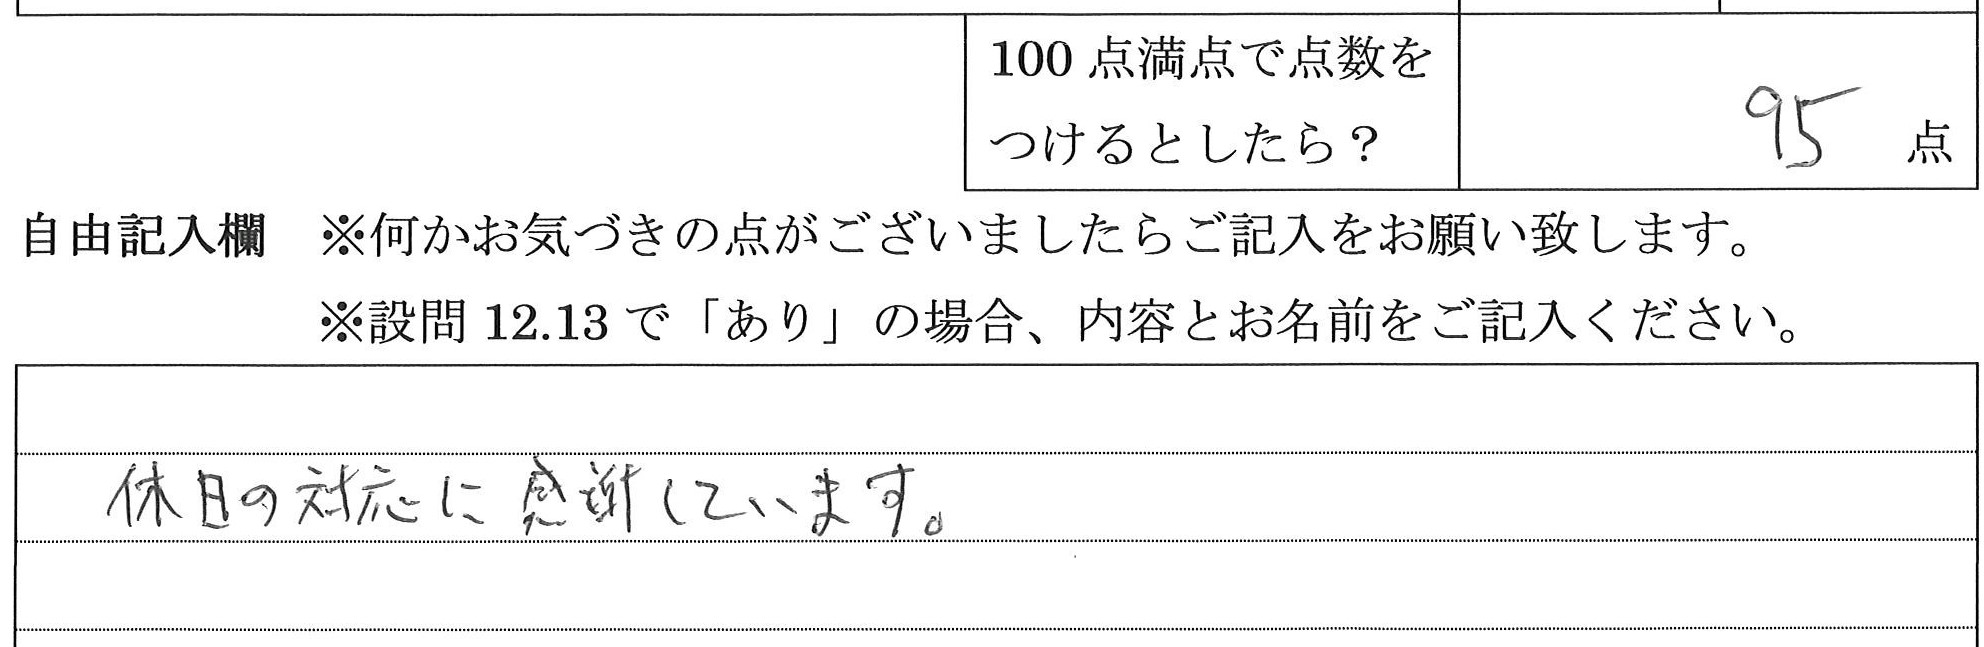 100 点満点で点数を
つけるとしたら？
95 点
自由記入欄 ※何かお気づきの点がございましたらご記入をお願い致します。
※設問 12.13 で「あり」の場合、内容とお名前をご記入ください。
休日の対応に感謝しています。